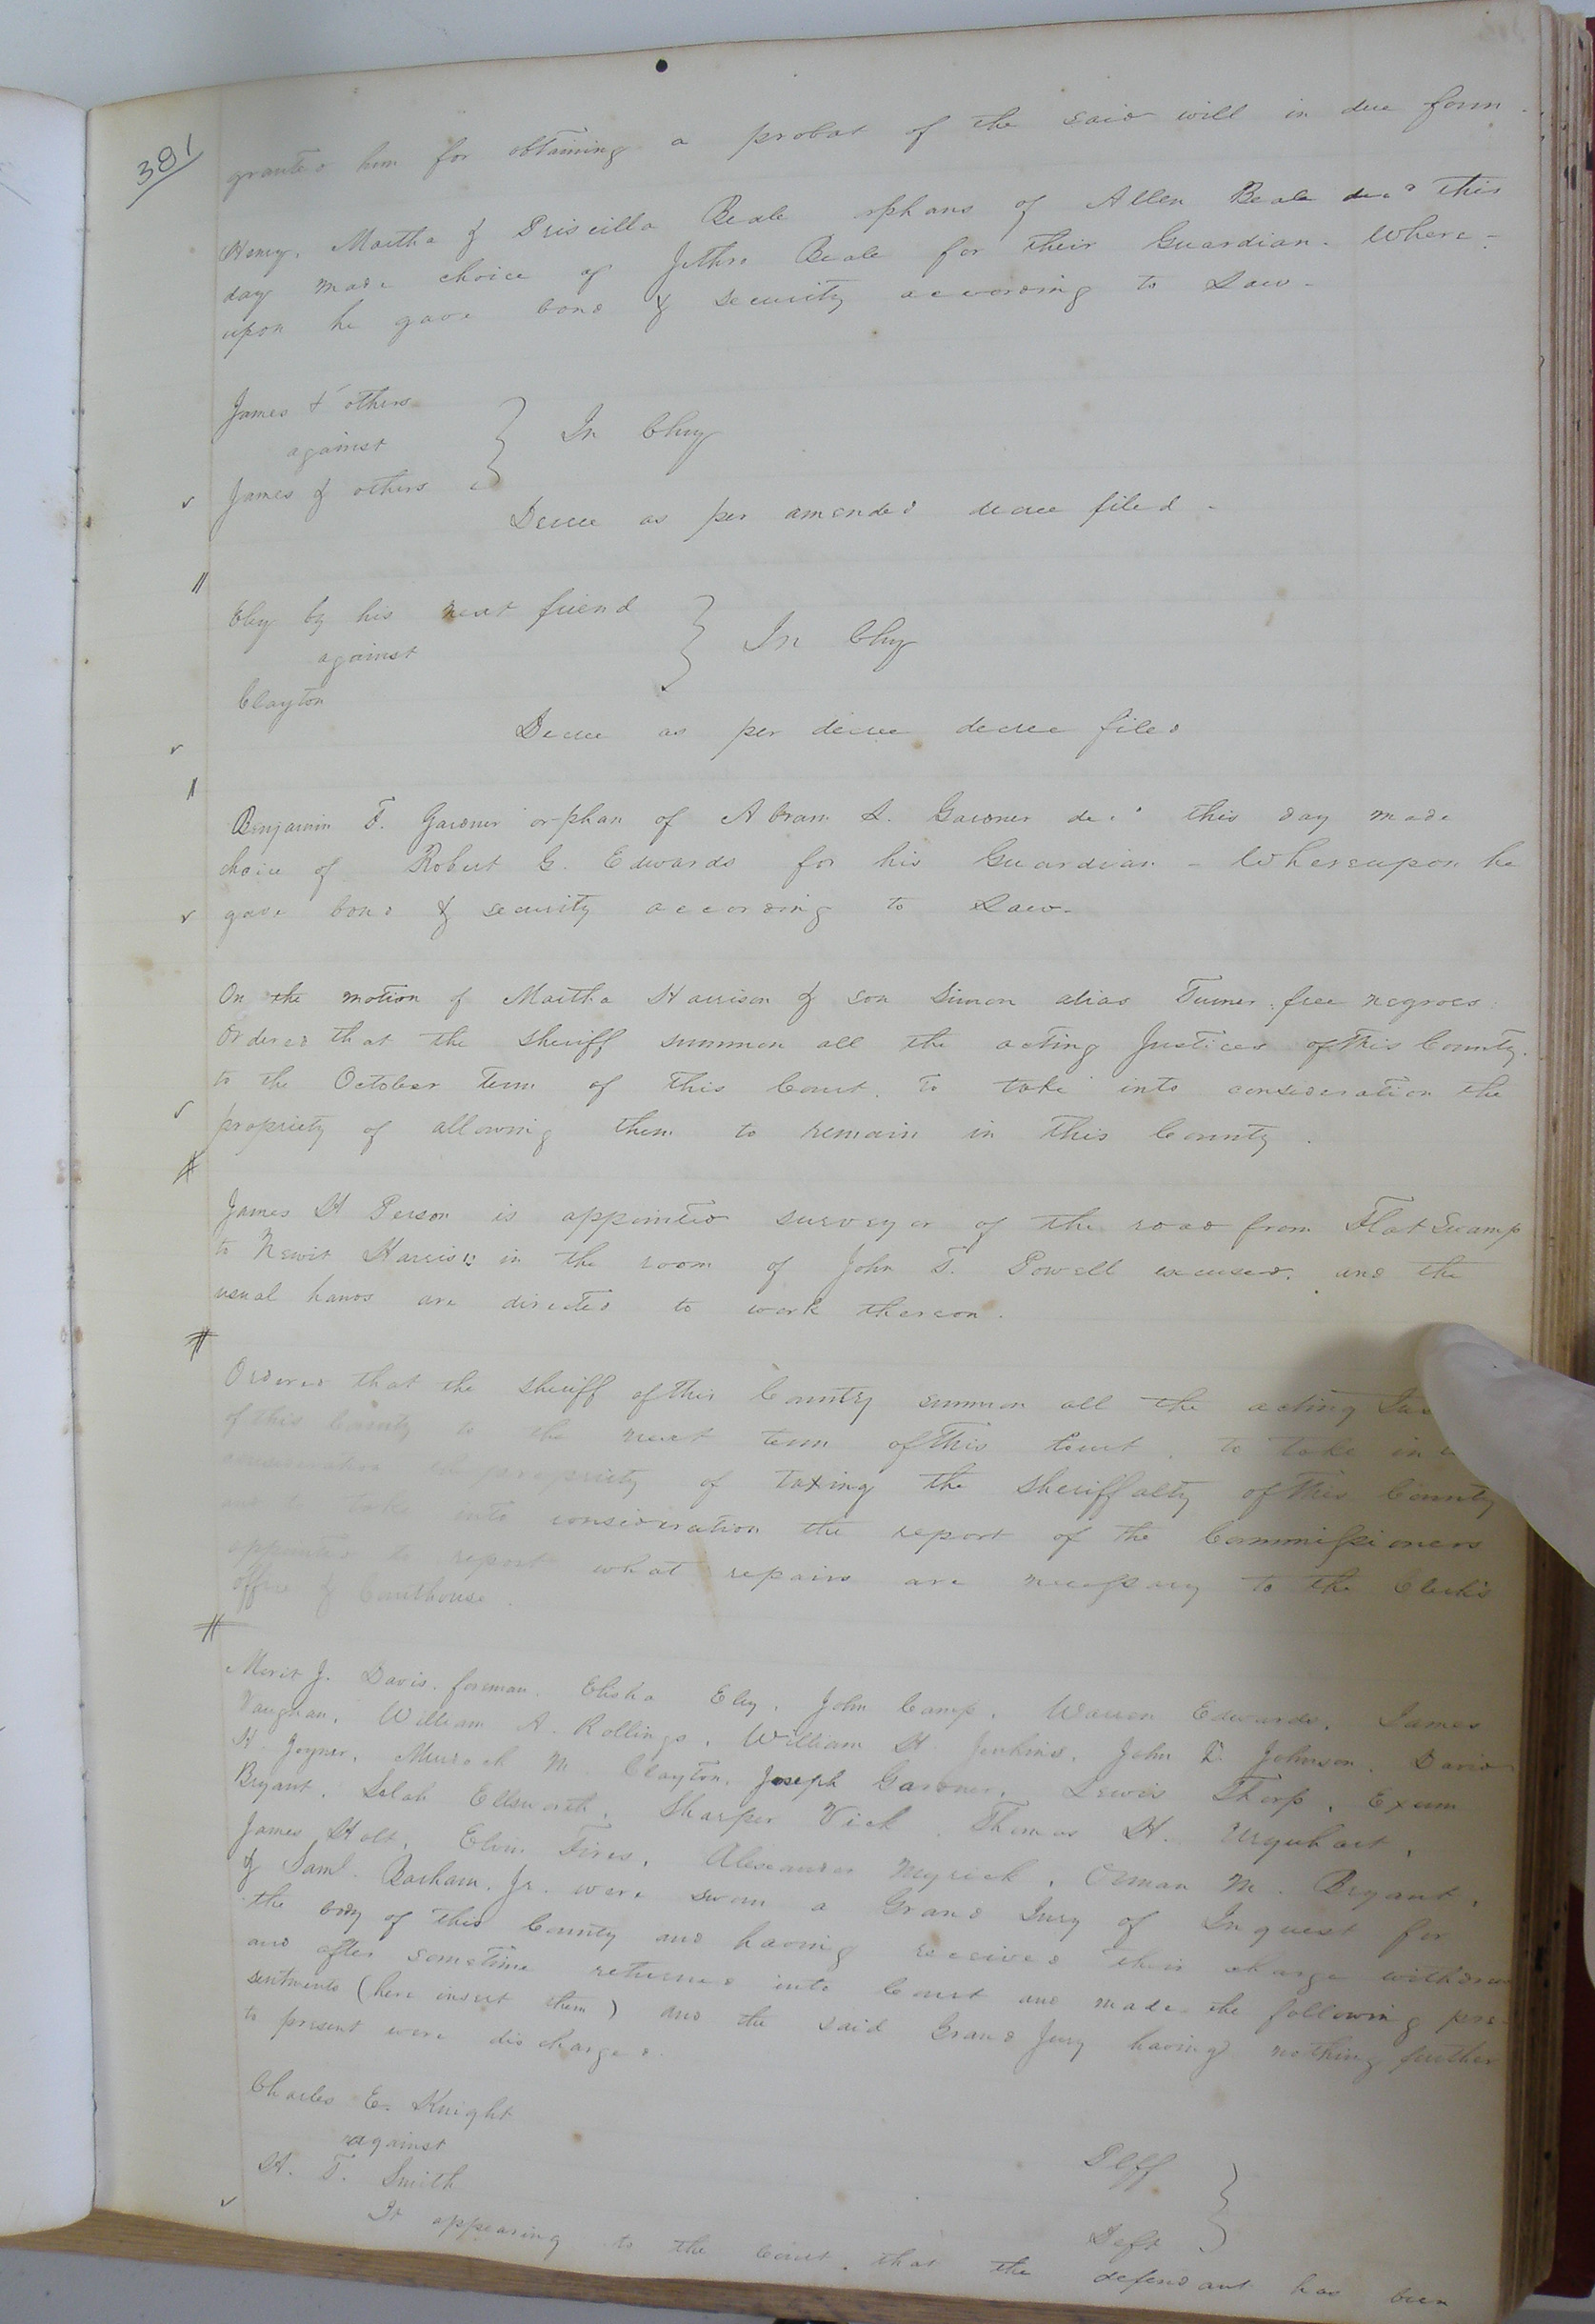 381
granted him for obtaining a probat of the said will in due form.
Henry, Martha & Priscilla Beale orphans of Allen Beale decd this
day made choice of Jethro Beale for their Guardian. Where-
upon he gave bond & security according to Law.
James & others
against
James & others
In Chy
Decree as per amended decree filed.
Eley by his next friend
against
Clayton
In Chy
Decree as per decree decree filed
Benjamin F. Gardner orphan of Abram S. Gardner decd this day made
choice of Robert G. Edwards for his Guardian - Whereupon he
gave bond & security according to Law.
On the motion of Martha Harrison & son Simon alias Turner free negroes
Ordered that the sheriff summon all the acting Justices of this County.
to the October Term of this Court. to take into consideration the
propriety of allowing them to remain in this County.
James H Person is appointed surveyor of the road from Flat Swamp
to Newit Harris's in the room of John T. Powell excused. and the
usual hands are directed to work thereon.
Ordered that the sheriff of this County summon all the acting
of this County to the next term of this Court. to take
consideration the propriety of taxing the Sheriffalty of this County
and to take into consideration the report of the Commissioners
appointed to report what repairs are necessary to the Clerk's
office & Courthouse.
Merit J. Davis. foreman. Elisha Eley, John Camp, Warren Edwards, James
Vaughan, William A. Rollings, William H. Jenkins, John E. Johnson, David
H. Joyner, Murdock M Clayton, Joseph Gardner, Lewis Thorp, Exum
Bryant, Selah Ellsworth, Sharper Vick, Thomas H. Urquhart,
James Holt, Elvin Fires, Alexander Myrick, Orman M. Bryant,
& Saml. Barham. Jr. were sworn a Grand Jury of Inquest for
the body of this County and having received their charge withdrew
and after sometime returned into Court and made the following pre-
sentments (here insert them) and the said Grand Jury having nothing further
to present were discharged.
Charles E. Knight
against
Plff
H. T. Smith
Deft
It appearing to the Court, that the defendant has been